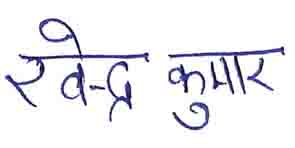 रवेन्द्र कुमार